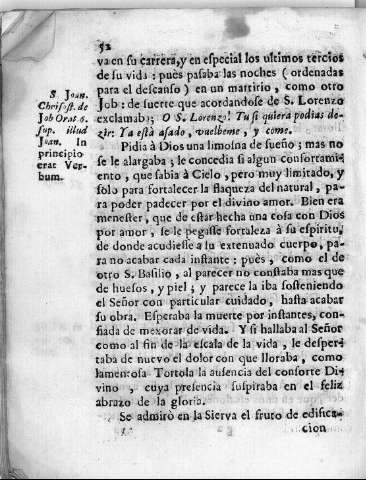 52
va en su carrera, y en especial los ultimos tercios
de su vida: pues pasaba las noches (ordenadas
para el descanso) en un martirio, como otro
Job: de suerte que acordandose de S. Lorenzo
exclamaba; O S. Lorenzo! Tu si quiera podias de-
zir: Ya està asado, vuelbeme, y come.
S Joan.
Chrisost. de
Job Orat 6.
sup. illud
Joan. In
principio
erat Ver-
bum.
Pidia à Dios una limosna de sueño; mas no
se le alargaba; le concedia si algun confortamiē
to, que sabia à Cielo, pero muy limitado, y
solo para fortalecer la flaqueza del natural, pa-
ra poder padecer por el divino amor. Bien era
menester, que de estar hecha una cosa con Dios
por amor, se le pegasse fortaleza à su espiritu,
de donde acudiesse à tu extenuado cuerpo, pa-
ra no acabar cada instante: pues, como el de
otro S. Basilio, al parecer no constaba mas que
de huesos, y piel; y parece la iba sosteniendo
el Señor con particular cuidado, hasta acabar
su obra. Esperaba la muerte por instantes, con-
fiada de mexorar de vida. Y si hallaba al Señor
como al fin de la escala de la vida, le desper-
taba de nuevo el dolor con que lloraba, como
lamentosa Tortola la ausencia del consorte Di-
vino, cuya presencia suspiraba en el feliz
abrazo de la gloria.
Se admirò en la Sierva el fruto de edifica-
cion